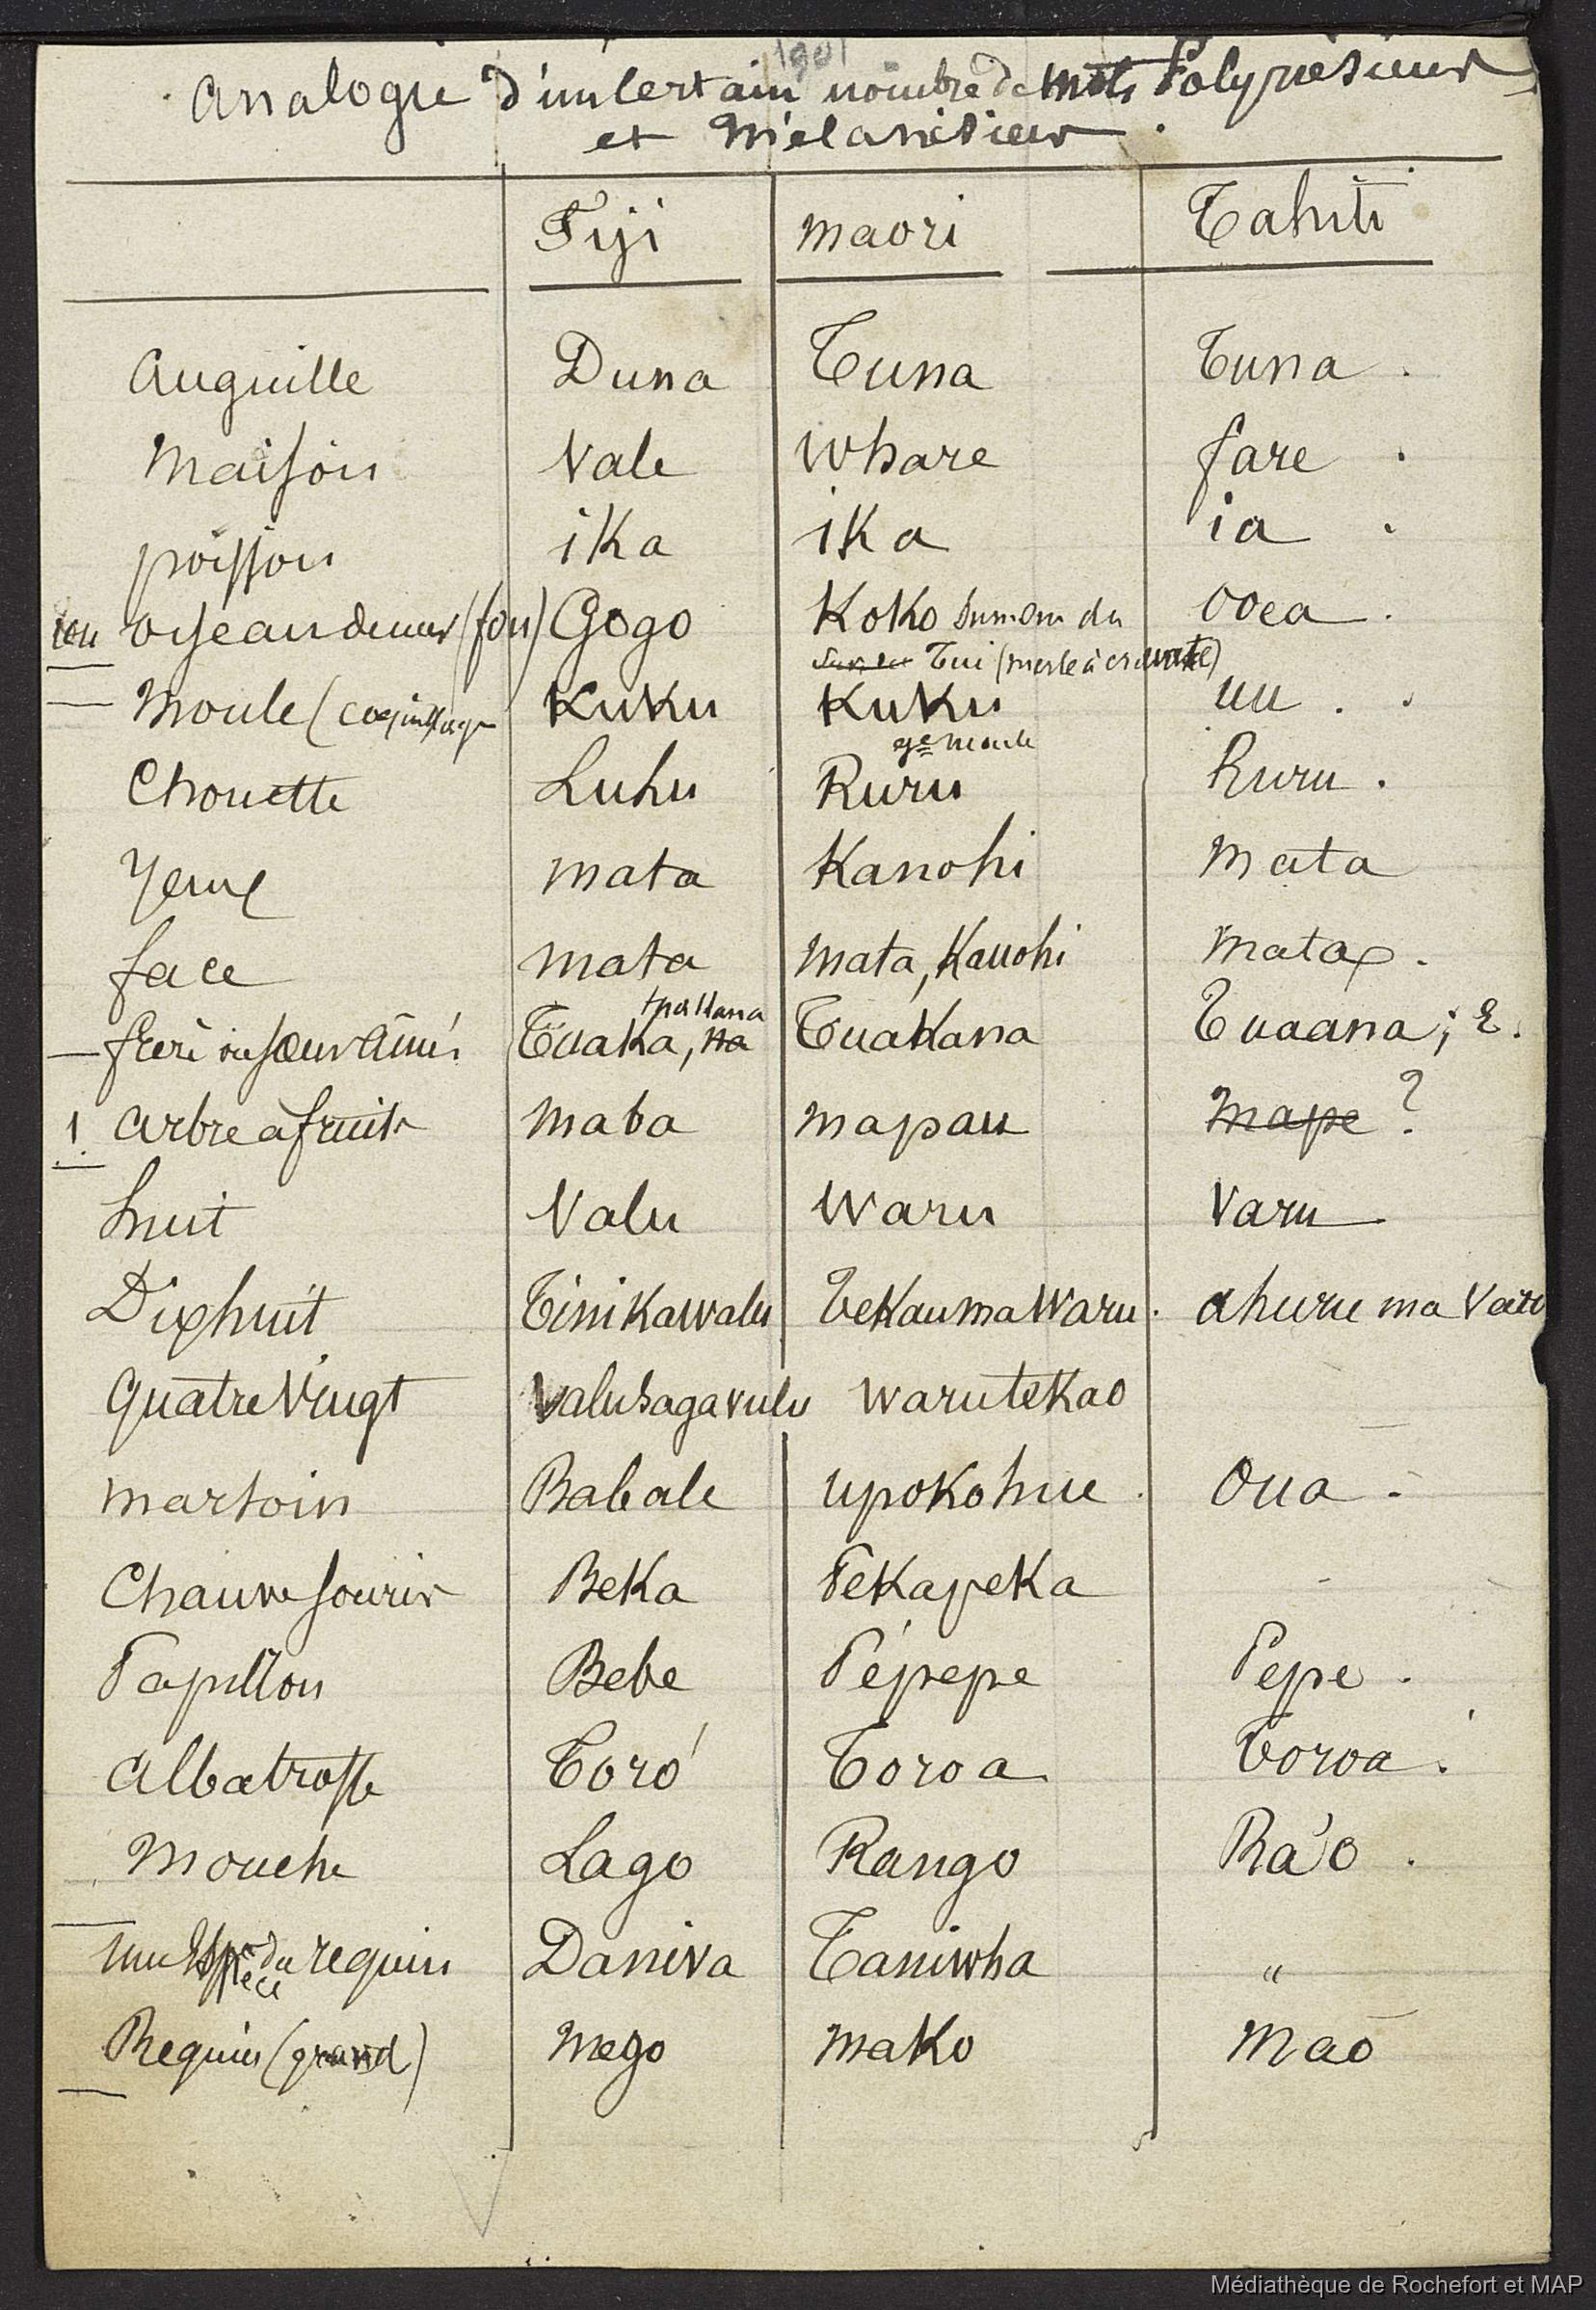 1901
Analogie d'un certain nombre de mots Polynésiens
et Mélanésiens.
Fiji maori Tahiti
Anguille Duna Tuna Tuna.
Maison Vale Whare fare.
poisson ika ika ia.
un oiseau de mer (fou) Gogo Koko surnom du ooea.
Tui (merle à cravate)
Moule (coquillage Kuku Kuku uu.
gde moule
Chouette Luhu Ruru Ruru.
Yeux mata Kanohi mata
face mata mata, Kanohi mata.
frère ou soeur aînés Tuaka, na Tuakana Tuaana;
1 arbre à fruits maba mapau mape ?
huit Valu Waru Varu
Dixhuit Tinikawalu Tekaumawaru. ahuru ma varu
Quatre Vingt Valusagavulu warutekao
marsoin Babale upokohue. Oua.
Chauve souris Beka Pekapeka
Papillon Bebe Pépepe Pepe.
Albatrosse Toró Toroa Toroa.
Mouche Lago Rango Ra'o.
une Espèce de requin Daniva Taniwha "
Requin (grand) mego mako Mao
Médiathèque de Rochefort et MAP